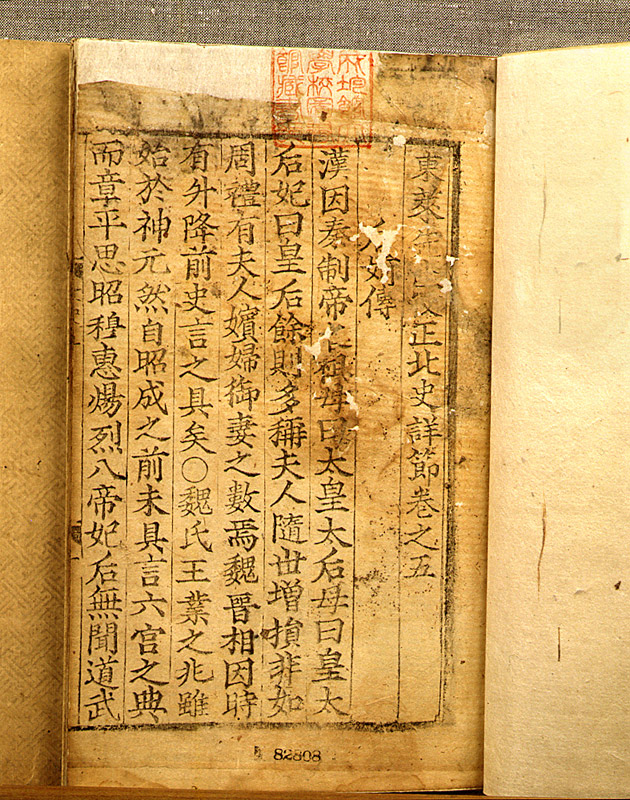 東萊先生校正北史詳節卷之五
后妃傳
漢因秦制帝之祖母曰太皇太后母曰皇太
后妃曰皇后餘則多稱夫人隨世增損非如
周禮有夫人嬪婦御妻之數焉魏晉相因時
有外降前史言之具矣○魏氏王業之兆雖
始於神元然自昭成之前未具言六宮之典
而章平思昭穆惠煬烈八帝妃后無聞道武
82808